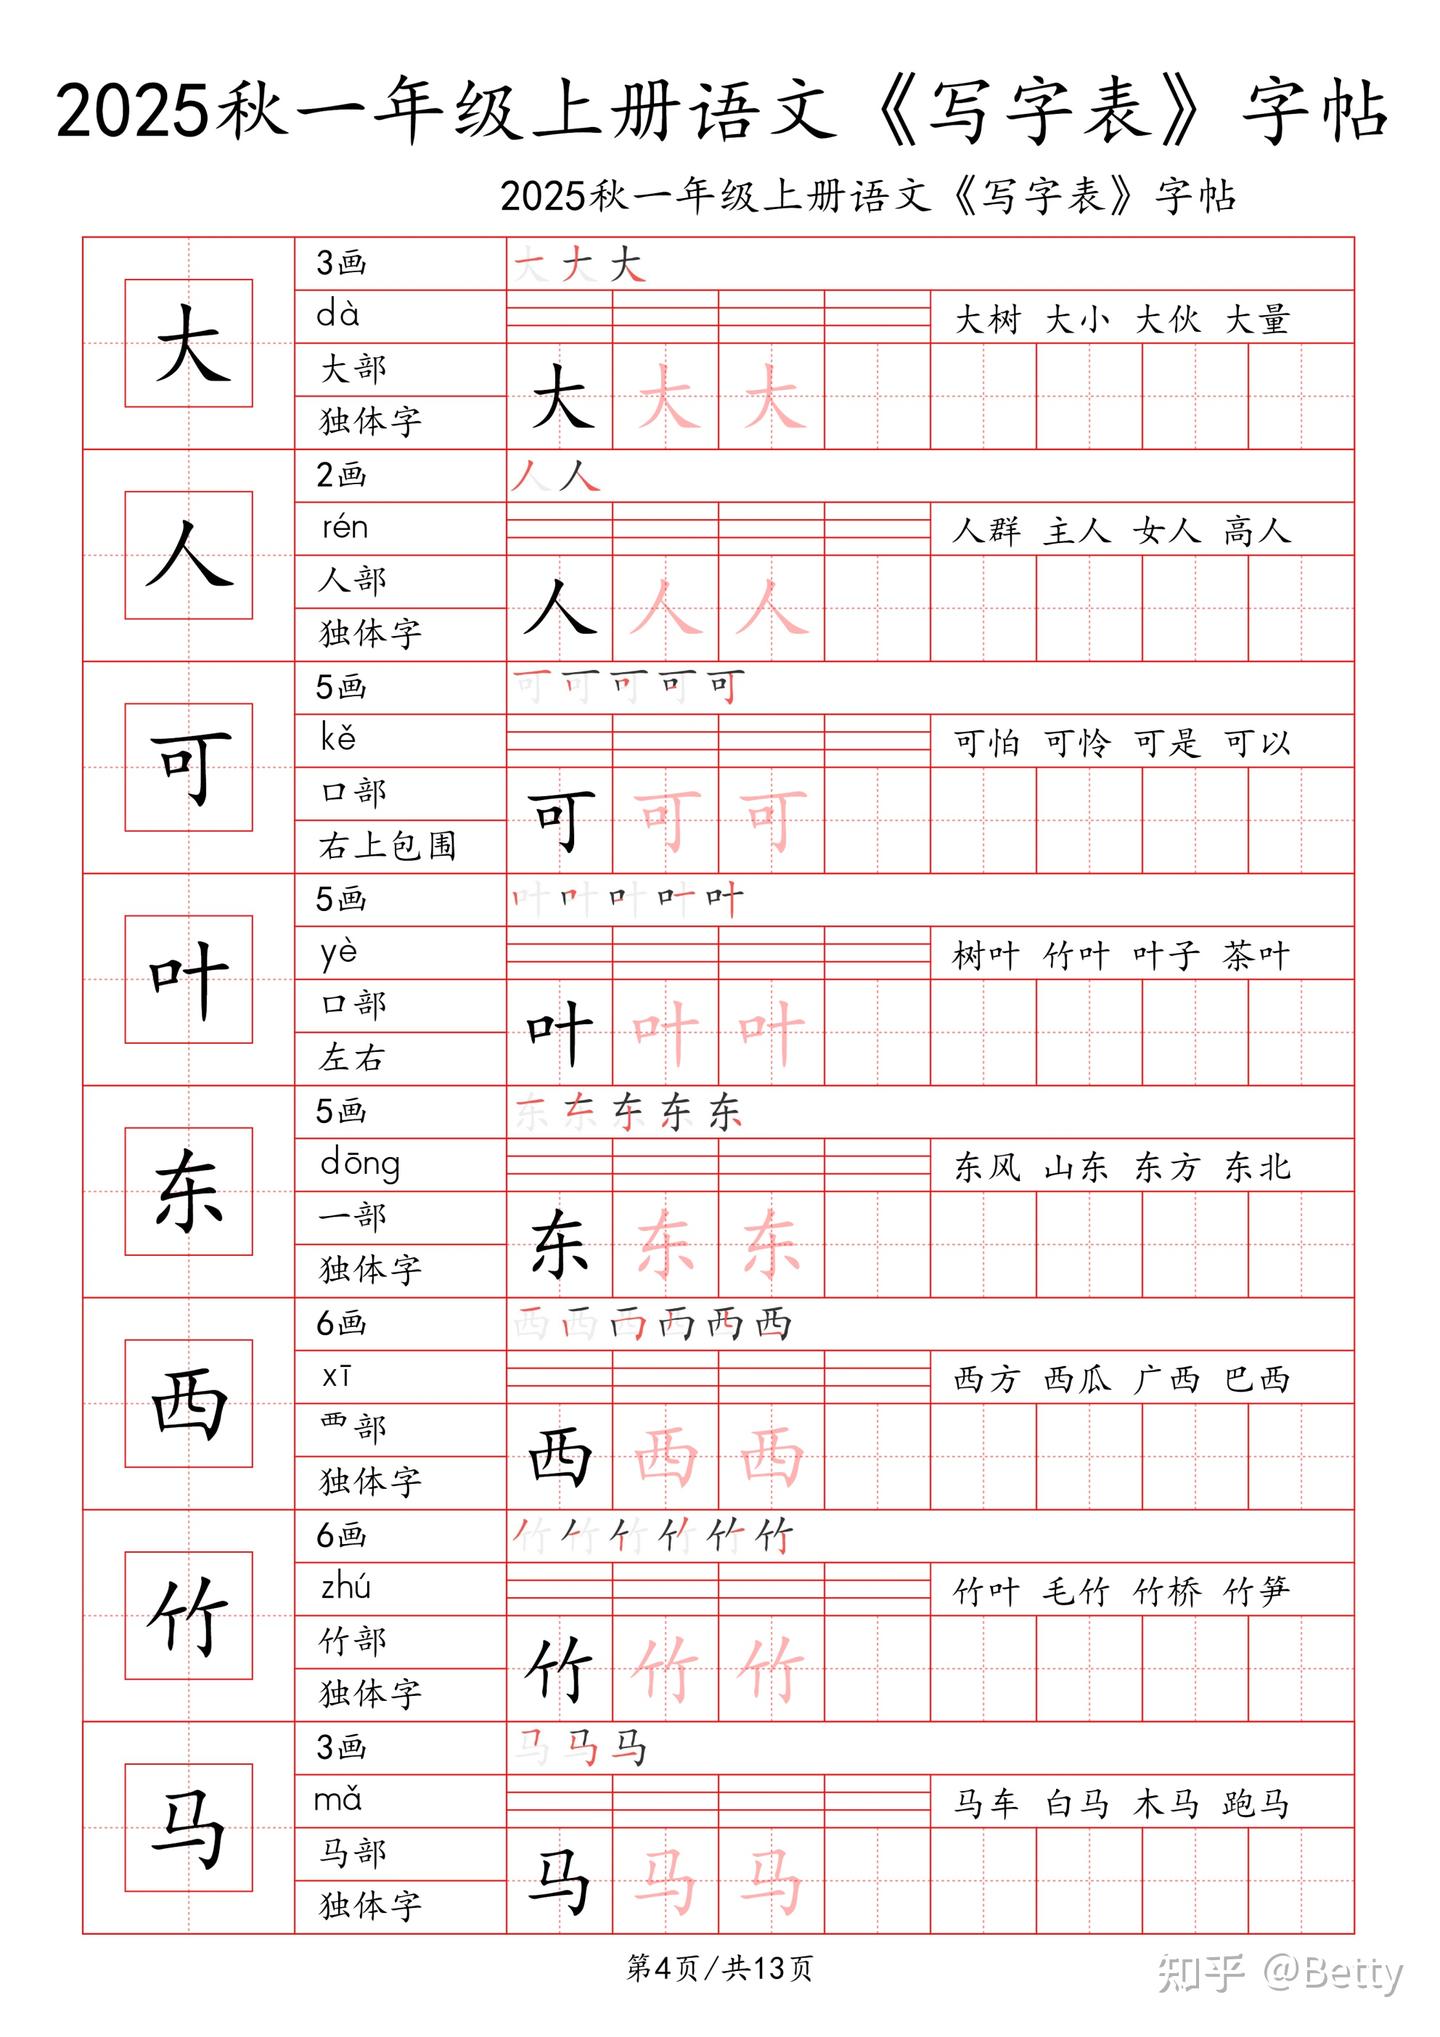 2025秋一年级上册语文《写字表》字帖
2025秋一年级上册语文《写字表》字帖
大
3画
大 大 大
dà
大树 大小 大伙 大量
大部
独体字
大 大 大
人
2画
人 人
rén
人群 主人 女人 高人
人部
独体字
人 人 人
可
5画
可 可 可 可 可
kě
可怕 可怜 可是 可以
口部
右上包围
可 可 可
叶
5画
叶 叶 叶 叶 叶
yè
树叶 竹叶 叶子 茶叶
口部
左右
叶 叶 叶
东
5画
东 东 东 东 东
dōng
东风 山东 东方 东北
一部
独体字
东 东 东
西
6画
西 西 西 西 西 西
xī
西方 西瓜 广西 巴西
覀部
独体字
西 西 西
竹
6画
竹 竹 竹 竹 竹 竹
zhú
竹叶 毛竹 竹桥 竹笋
竹部
独体字
竹 竹 竹
马
3画
马 马 马
mǎ
马车 白马 木马 跑马
马部
独体字
马 马 马
第4页/共13页
知乎 @Betty